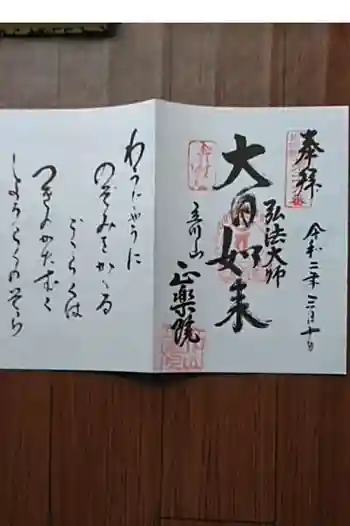 奉拝
令和二年三月十日
弘法大師
大日如来
立川山
正楽院
わうじやうに
のぞみをかくる
ごくらくは
つきのかたむく
しようとくのそら